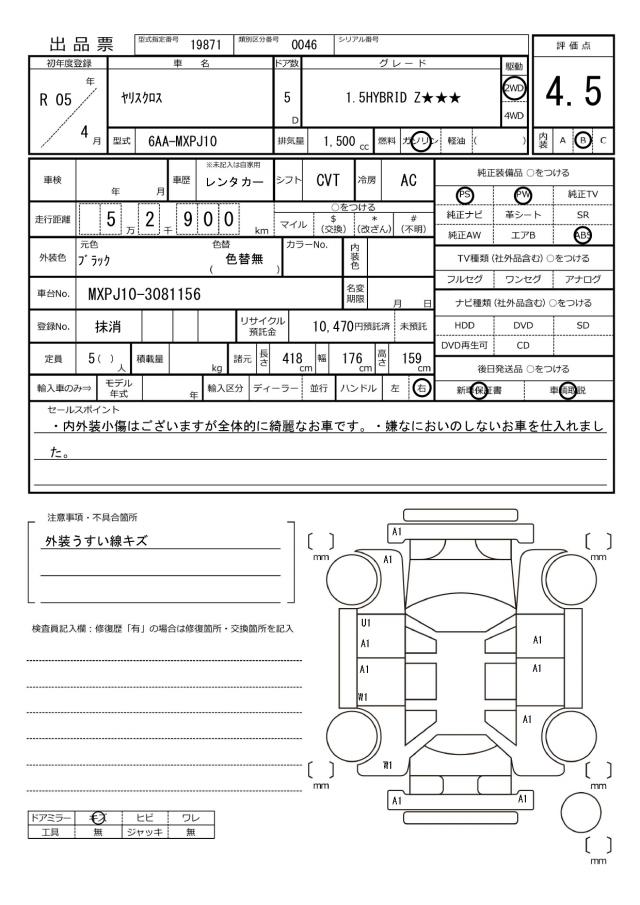 出品票 型式指定番号 19871 類別区分番号 0046 シリアル番号
評価点
4.5
内装 A B C
初年度登録 車名 ドア数 グレード 駆動
R 05 年 4 月 ヤリスクロス 5 D 1.5HYBRID Z★★★ 2WD
4WD
型式 6AA-MXPJ10 排気量 1,500 cc 燃料 ガソリン 軽油 ( )
車検 年 月 車歴 ※未記入は自家用 レンタカー シフト CVT 冷房 AC
走行距離 5 万 2 千 9 0 0 km ○をつける
マイル $ (交換) * (改ざん) # (不明)
外装色 元色 ブラック 色替 ( 色替無 ) カラーNo. 内装色
車台No. MXPJ10-3081156 名変期限 月 日
登録No. 抹消 リサイクル預託金 10,470円預託済 未預託
定員 5( ) 人 積載量 kg 諸元 長さ 418 cm 幅 176 cm 高さ 159 cm
輸入車のみ⇒ モデル年式 年 輸入区分 ディーラー 並行 ハンドル 左 右
純正装備品 ○をつける
PS PW 純正TV
純正ナビ 革シート SR
純正AW エアB ABS
TV種類 (社外品含む) ○をつける
フルセグ ワンセグ アナログ
ナビ種類 (社外品含む) ○をつける
HDD DVD SD
DVD再生可 CD
後日発送品 ○をつける
新車保証書 車輌取説
セールスポイント
・内外装小傷はございますが全体的に綺麗なお車です。・嫌なにおいのしないお車を仕入れまし
た。
注意事項・不具合箇所
外装うすい線キズ
検査員記入欄：修復歴「有」の場合は修復箇所・交換箇所を記入
ドアミラー キズ ヒビ ワレ
工具 無 ジャッキ 無
A1
[ ] mm
[ ] mm
A1
U1
A1
A1
A1
A1
W1
A1
W1
[ ] mm
[ ] mm
A1
A1
[ ] mm